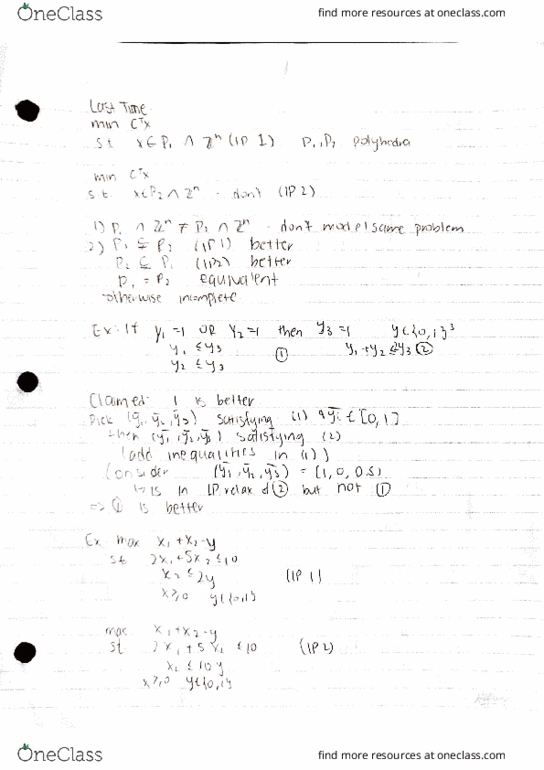 OneClass
find more resources at oneclass.com
Last Time
min Cᵀx
st x∈P₁ ∩ ℤⁿ (IP 1) P₁,P₂ polyhedra
min Cᵀx
s.t. x∈P₂ ∩ ℤⁿ - don't (IP 2)
1) P₁ ∩ ℤⁿ ≠ P₂ ∩ ℤⁿ - don't model same problem
2) P₁ ⊊ P₂ (IP 1) better
P₂ ⊊ P₁ (IP2) better
P₁ = P₂ equivalent
otherwise incomplete
Ex: If y₁=1 OR y₂=1 then y₃=1 y∈{0,1}³
y₁ ≤ y₃ ① y₁+y₂≤y₃ ②
y₂ ≤ y₃
Claimed: 1 is better
Pick (ȳ₁, ȳ₂, ȳ₃) satisfying (1) & ȳᵢ ∈ [0,1]
then (ȳ₁, ȳ₂, ȳ₃) satisfying (2)
(add inequalities in (1))
Consider (ȳ₁, ȳ₂, ȳ₃) = (1, 0, 0.5)
is in LP relax of ② but not ①
=> ① is better
Ex max x₁+x₂-y
st 2x₁+5x₂≤10
x₂ ≤ 2y (IP 1)
x≥0 y∈{0,1}
max x₁+x₂-y
st 2x₁+5x₂ ≤10 (IP2)
x₂ ≤ 10y
x≥0 y∈{0,1}
OneClass
find more resources at oneclass.com